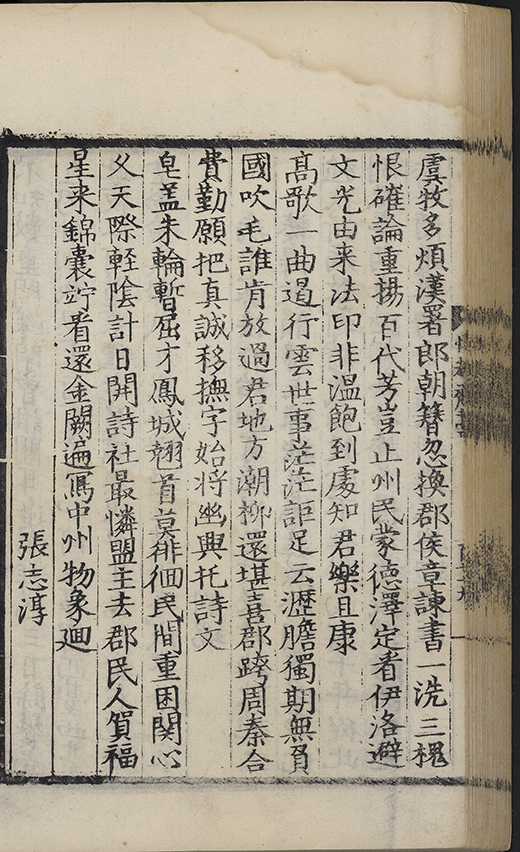 虞牧多煩漢署郎朝簪忽換郡侯章諫書一洗三槐
恨確論重揚百代芳豈止州民蒙德澤定看伊洛避
文光由来法印非溫飽到處知君樂且康
高歌一曲遏行雲世事茫茫詎足云瀝膽獨期無負
國吹毛誰肯放過君地方潮柳還堪喜郡跨周秦合
費勤願把真誠移撫字始將幽興托詩文
皂盖朱輪暫屈才鳳城翹首莫徘徊民間重困関心
乆天際軽陰計日開詩社最憐盟主去郡民人賀福
星来錦囊竚看還金闕遍寫中州物象廻
張志淳